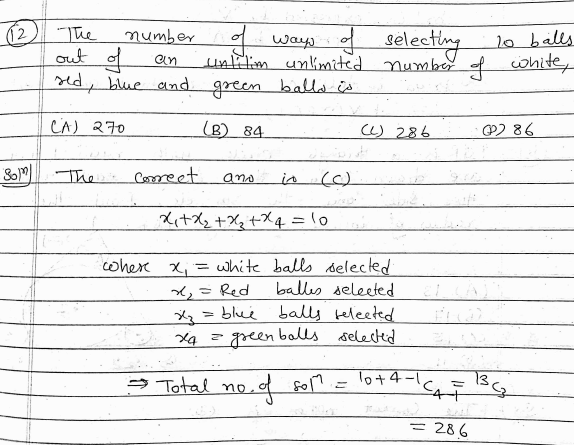 12) The number of ways of selecting 10 balls
out of an unlimited number of white,
red, blue and green balls is
(A) 270 (B) 84 (C) 286 (D) 86
Solⁿ The correct ans is (C)
x₁+x₂+x₃+x₄ = 10
where x₁ = white balls selected
x₂ = Red balls selected
x₃ = blue balls selected
x₄ = green balls selected
⇒ Total no. of solⁿ = ¹⁰⁺⁴⁻¹C₄₋₁ = ¹³C₃
= 286